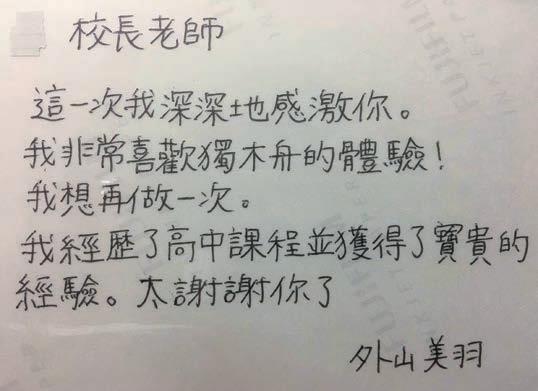 校長老師
這一次我深深地感激你。
我非常喜歡獨木舟的體驗!
我想再做一次。
我經歷了高中課程並獲得了寶貴的
經驗。太謝謝你了
外山美羽